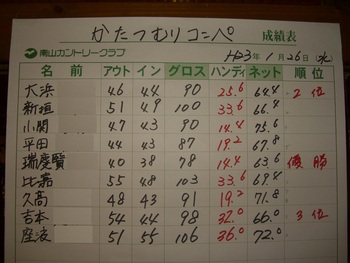 かたつむりコンペ 成績表
南山カントリークラブ H23年1月26日(水)
名前 アウト イン グロス ハンディ ネット 順位
大浜 46 44 90 25.6 64.4 2位
新垣 51 49 100 33.6 66.4
小関 47 43 90 14.4 75.6
平田 44 43 87 19.2 67.8
瑞慶賢 40 38 78 14.4 63.6 優勝
比嘉 55 48 103 33.6 69.4
久高 48 43 91 19.2 71.8
吉本 54 44 98 32.0 66.0 3位
座波 51 55 106 36.0 72.0